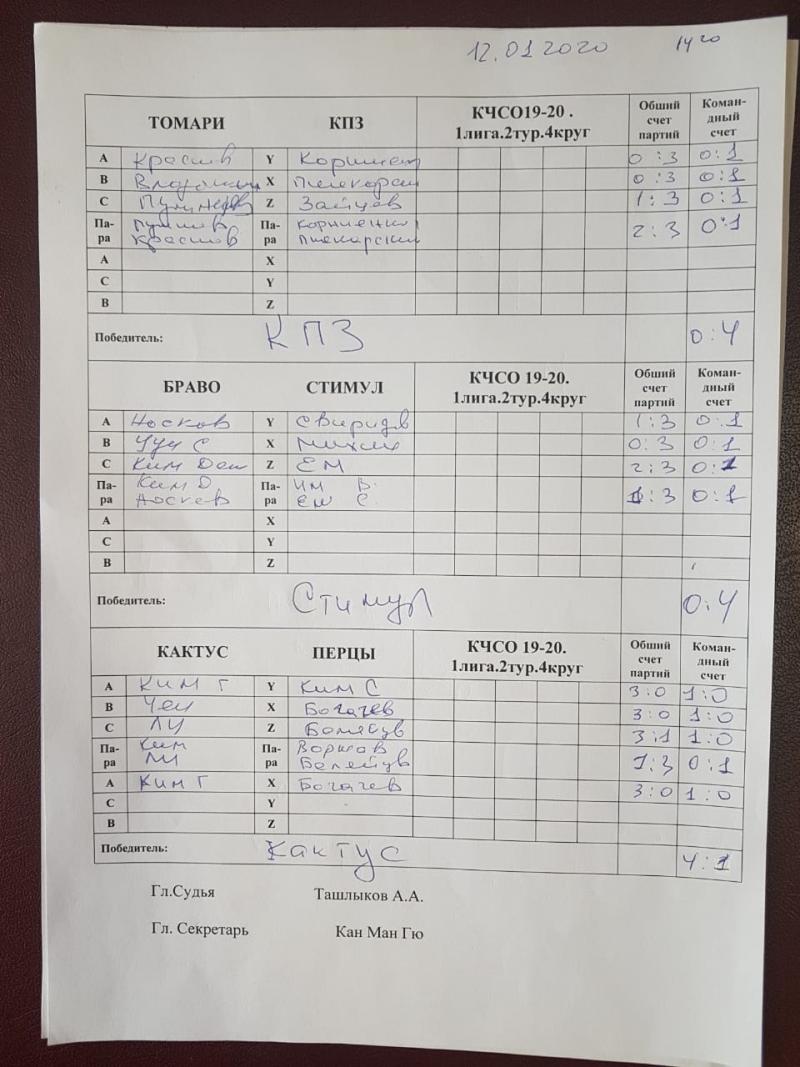 12.01.2020 14 20
ТОМАРИ КПЗ КЧСО19-20 . 1лига.2тур.4круг Общий счет партий Коман-дный счет
A Y 0:3 0:1
B X 0:3 0:1
C Z Зайцев 1:3 0:1
Па-ра Па-ра 2:3 0:1
Краснов
A X
C Y
B Z
Победитель: КПЗ 0:4
БРАВО СТИМУЛ КЧСО 19-20. 1лига.2тур.4круг Общий счет партий Коман-дный счет
A Носков Y 1:3 0:1
B X 0:3 0:1
C Ким Ден Z ЕМ 2:3 0:1
Па-ра Ким D Па-ра 1:3 0:1
Носков
A X
C Y
B Z
Победитель: Стимул 0:4
КАКТУС ПЕРЦЫ КЧСО 19-20. 1лига.2тур.4круг Общий счет партий Коман-дный счет
A Ким Г Y Ким С 3:0 1:0
B Чен X Богачев 3:0 1:0
C ЛИ Z 3:1 1:0
Па-ра Ким Па-ра 1:3 0:1
Ли
A Ким Г X Богачев 3:0 1:0
C Y
B Z
Победитель: Кактус 4:1
Гл.Судья Ташлыков А.А.
Гл. Секретарь Кан Ман Гю